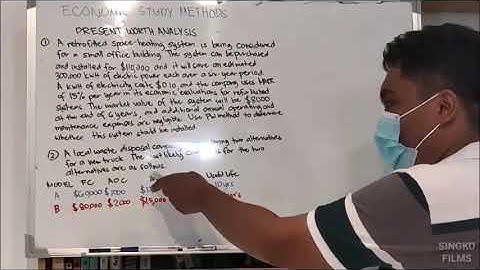 ECONOMIC STUDY METHODS
PRESENT WORTH ANALYSIS
① A retrofitted space-heating system is being considered
for a small office building. The system can be purchased
and installed for $110,000 and it will save an estimated
300,000 kWh of electric power each over a six-year period.
A kWh of electricity costs $0.10, and the company uses MARR
of 15% per year in its economic evaluations for refurbished
systems. The market value of the system will be $8000
at the end of 6 years, and additional annual operating and
maintenance expenses are negligible. Use PW method to determine
whether this system should be installed.
② A local waste disposal two alternatives
for a new truck. The most likely for the two
alternatives are as follows:
MODEL FC AOC Useful Life
A $60000 $7000 10yrs
B $80,000 $2000 $15,000
SINGKO
FILMS